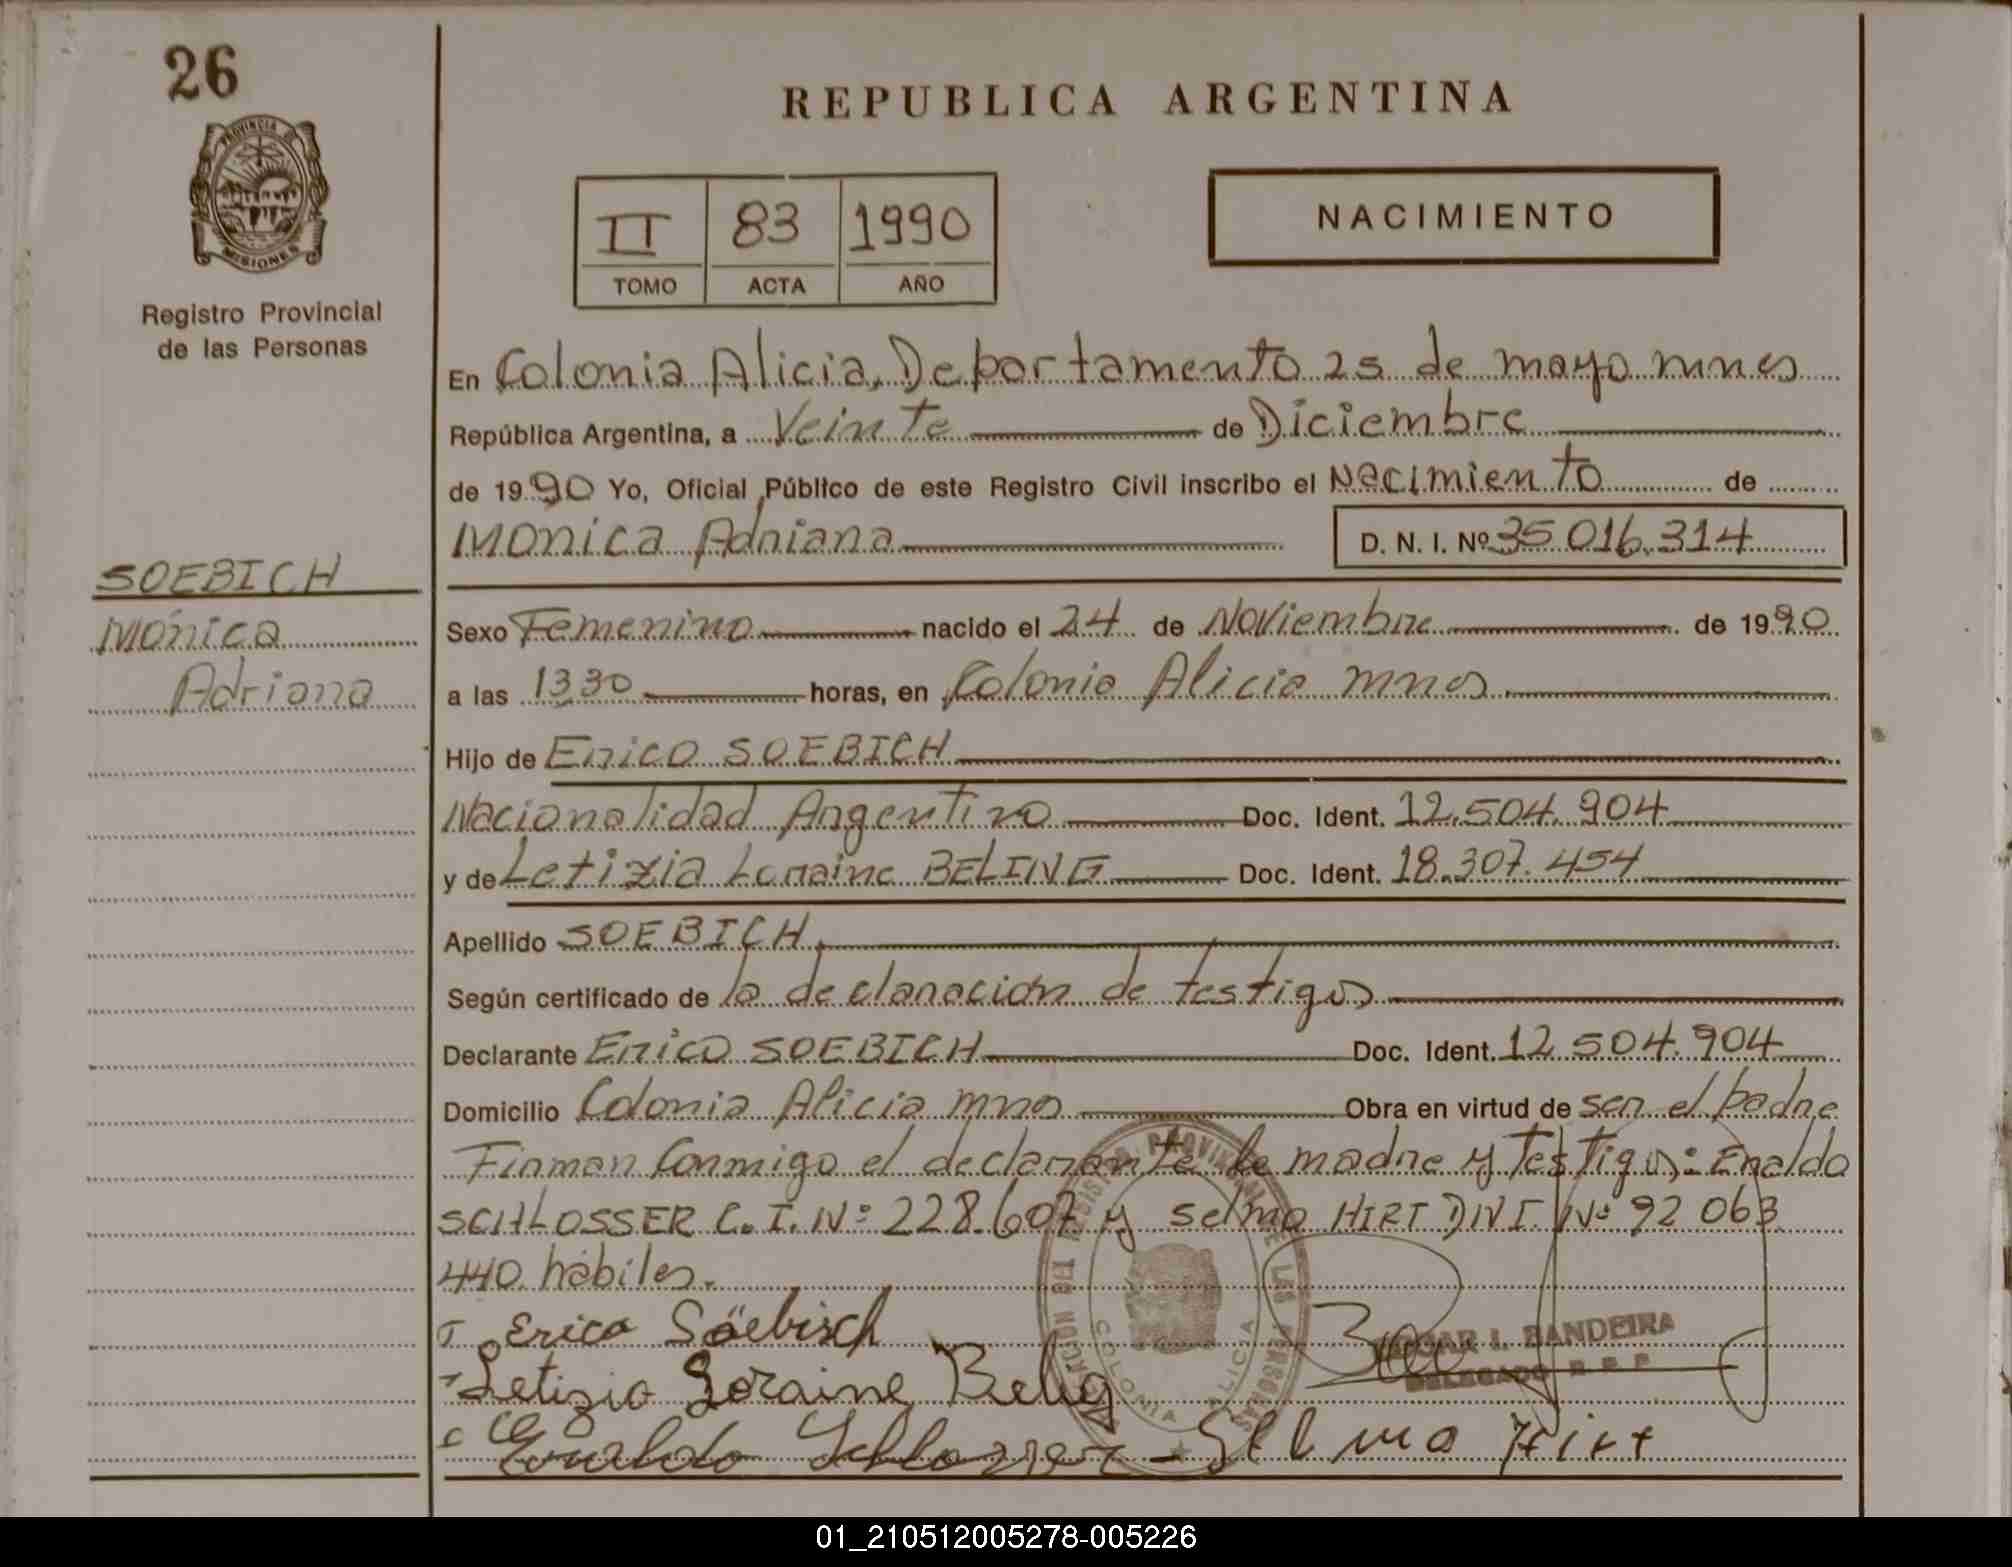 26
PROVINCIA
MISIONES
Registro Provincial
de las Personas
SOEBICH
Mónica
Adriana
REPUBLICA ARGENTINA
II 83 1990
TOMO ACTA AÑO
NACIMIENTO
En Colonia Alicia, Departamento 25 de mayo mnes
República Argentina, a Veinte de Diciembre
de 1990 Yo, Oficial Público de este Registro Civil inscribo el Nacimiento de
Monica Adriana D. N. I. Nº 35 016.314
Sexo Femenino nacido el 24 de Noviembre de 1990
a las 13 30 horas, en Colonia Alicia mnes
Hijo de Erico SOEBICH
Nacionalidad Argentino Doc. Ident. 12.504.904
y de Letizia Lorraine BELING Doc. Ident. 18.307.454
Apellido SOEBICH
Según certificado de la declaración de testigos
Declarante Erico SOEBICH Doc. Ident. 12 504.904
Domicilio Colonia Alicia mnes Obra en virtud de ser el padre
Firman Conmigo el declarante la madre y testigos: Enaldo
SCHLOSSER C. I. Nº 228.607 y Selma HIRT DNI. Nº 92 063
440 hábiles.
Erico Söebisch
Letizia Loraine Belig
COLONIA ALICIA
I. BANDEIRA
DELEGADO R. P. P.
Schlosser - Selma Hirt
01_210512005278-005226